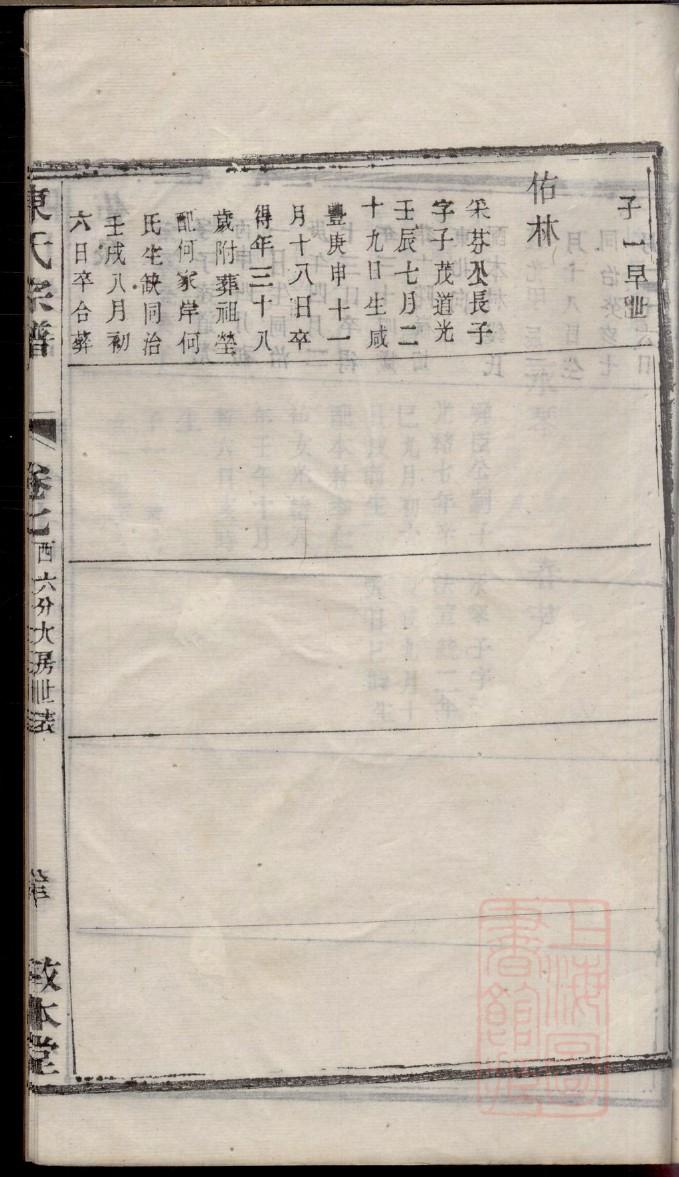 子一早世
佑林
采芬公長子
字子茂道光
壬辰七月二
十九日生咸
豐庚申十一
月十八日卒
得年三十八
歲附葬祖塋
配何家岸何
氏生缺同治
壬戌八月初
六日卒合葬
東氏宗譜
卷七 西六分大房世表
敦本堂
上海圖書館